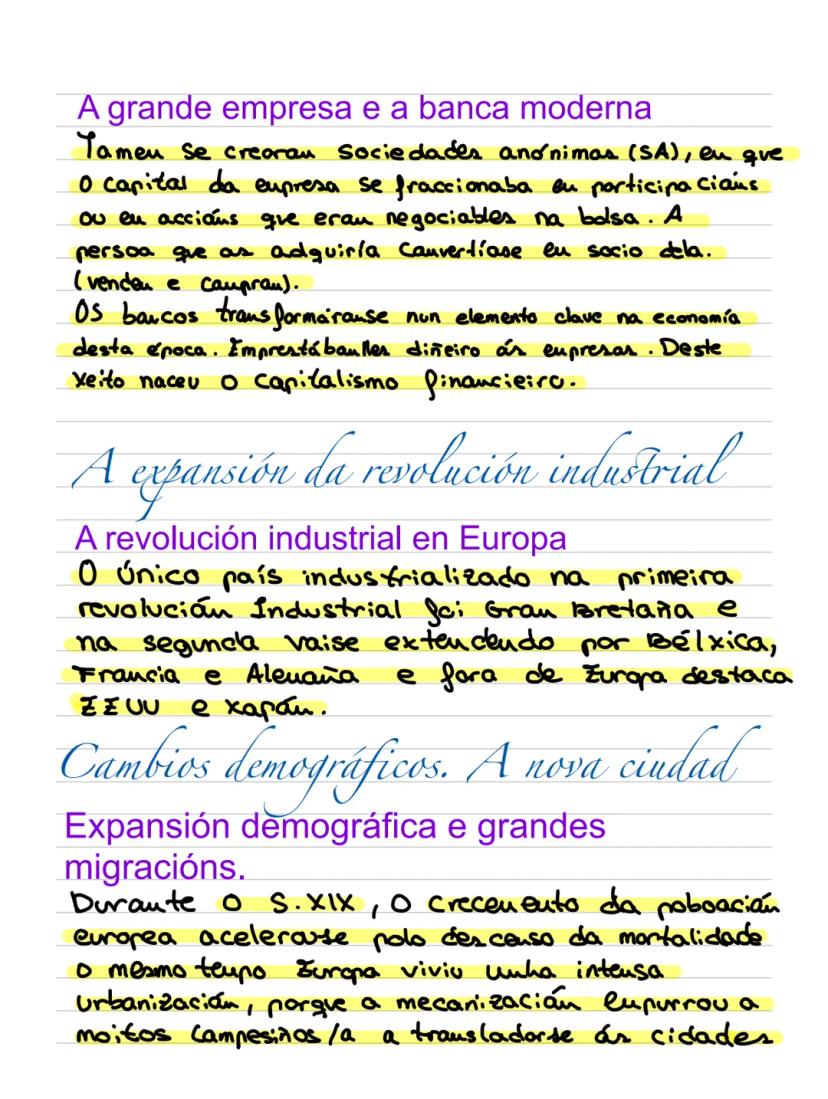 A grande empresa e a banca moderna
Tamen se crearan sociedades anónimas (SA), en que
o capital da empresa se fraccionaba en participacións
ou en accións que eran negociables na bolsa. A
persoa que as adquiría convertíase en socio dela.
(venden e compran).
Os bancos transformáranse nun elemento clave na economía
desta época. Emprestábanlles diñeiro ás empresas. Deste
xeito naceu o capitalismo financieiro.
A expansión da revolución industrial
A revolución industrial en Europa
O único país industrializado na primeira
revolución Industrial foi Gran Bretaña e
na segunda vaise extendendo por Bélxica,
Francia e Alemaña e fora de Europa destaca
EEUU e xapón.
Cambios demográficos. A nova ciudad
Expansión demográfica e grandes
migracións.
Durante o S.XIX, o crecemento da poboación
europea acelerouse polo descenso da mortalidade
o mesmo tempo Europa viviu unha intensa
urbanización, porque a mecanización empurrou a
moitos campesiños/a a transladarse ás cidades